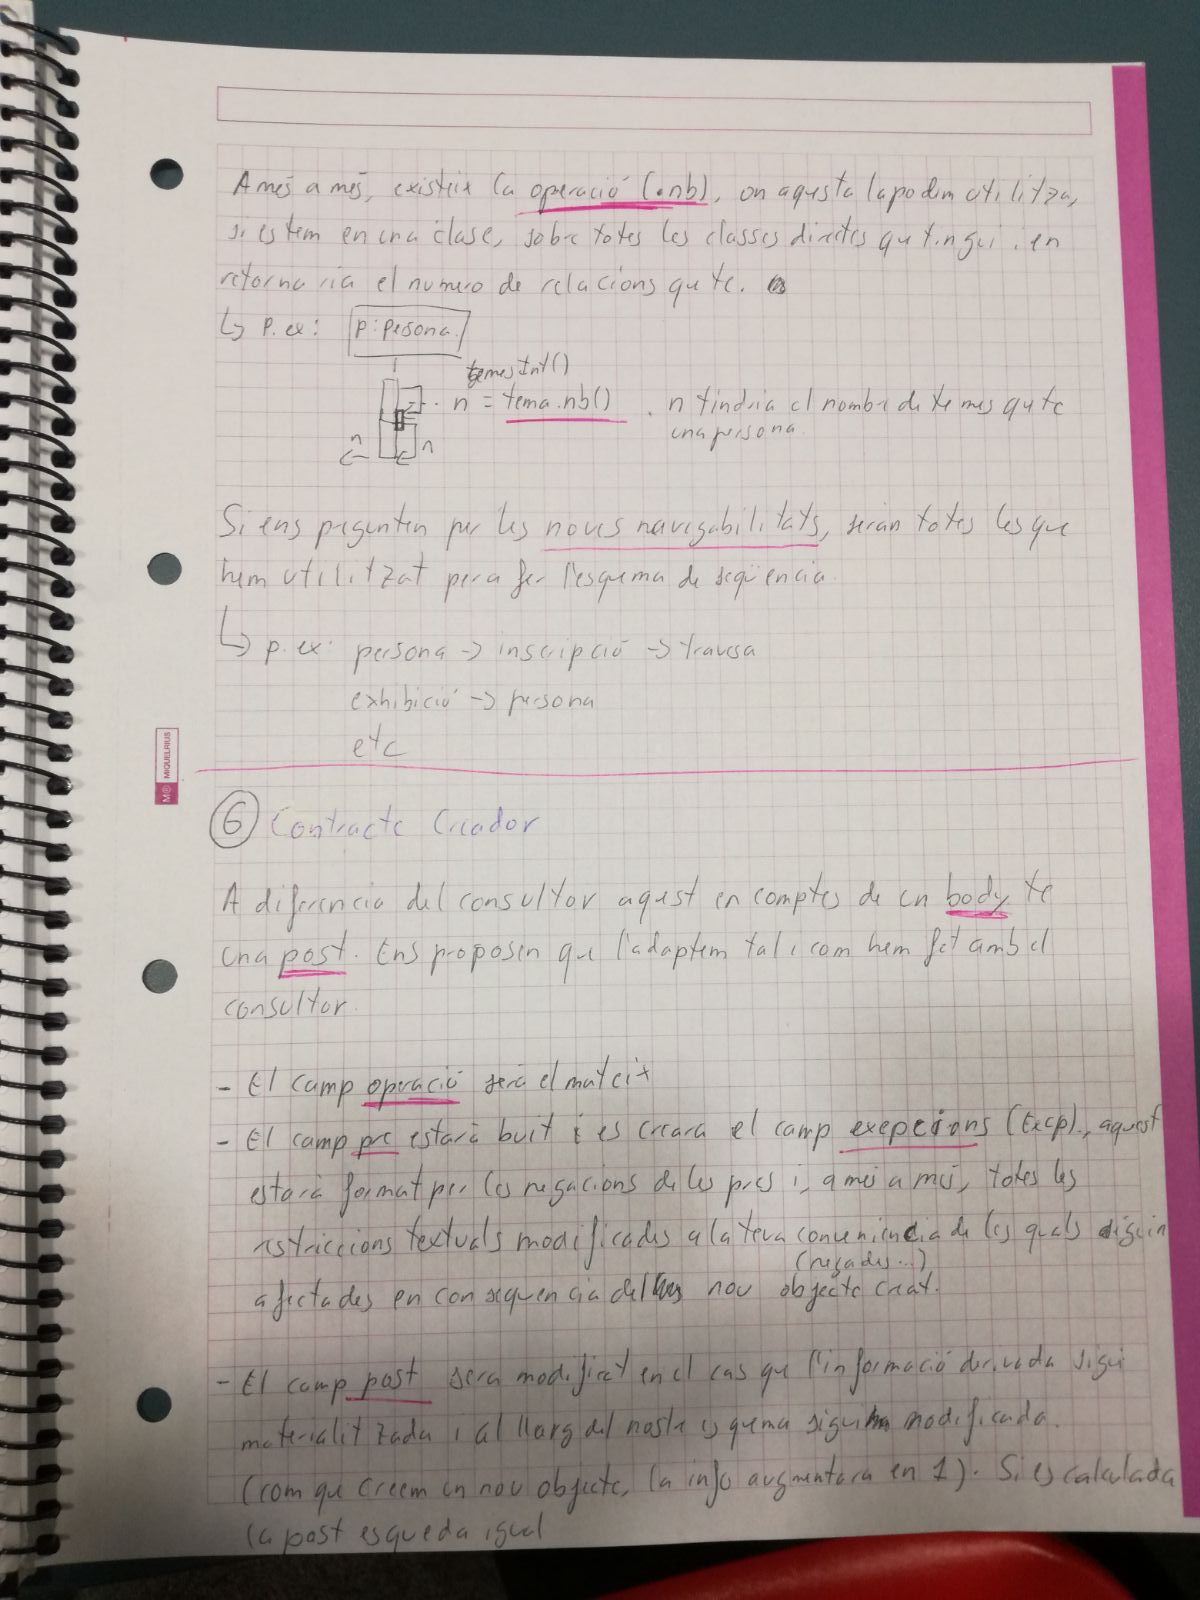 A més a més, existeix la operació (.nb), on aquesta la podem utilitza,
si estem en una clase, sobre totes les classes directes qu tingui i en
retornaria el numero de relacions qu te.
↳ P. ex: p:persona
temesInt()
n = tema.nb() . n tindria el nombre de temes qu te
una persona.
n n
Si ens pregunten per les noves navegabilitats, seran totes les que
hem utilitzat per a fer l'esquema de seqüencia.
↳ p. ex: persona -> inscripció -> travesa
exhibició -> persona
etc
MIQUELRIUS
6 Contracte Creador
A diferencia del consultor aquest en comptes de un body te
una post. Ens proposen que l'adaptem tal i com hem fet amb el
consultor.
- El camp operació serà el mateix
- El camp pre estarà buit i es creara el camp exepcions (Excp)., aquest
estarà format per les negacions de les pres i, a més a més, totes les
restriccions textuals modificades a la teva conveniencia de les quals siguin
(negades...)
afectades en consequencia del nou objecte creat.
- El camp post sera modificat en el cas que l'informació derivada sigui
materialitzada i al llarg del nostre esquema sigui modificada.
(com que creem un nou objecte, la info augmentara en 1). Si es calculada
la post es queda igual